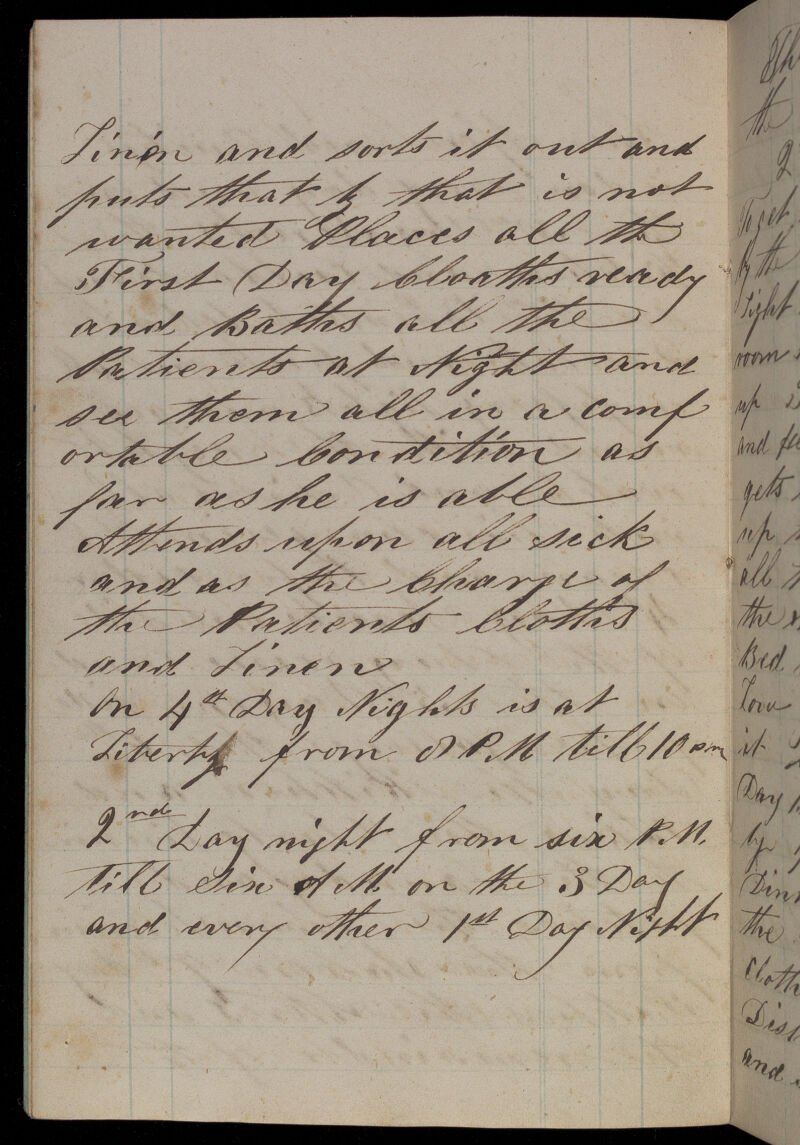 Linen and sorts it out and
puts that by that is not
wanted Places all the
First Day Cloaths ready
and Baths all the
Patients at Night and
see them all in a comf
ortable Condition as
far as he is able
Attends upon all sick
and as the Charge of
the Patients Cloths
and Linen
On 4st Day Nights is at
Liberty from 8 P.M till 10 pm
2nd Day night from six P.M.
till six A M on the 3 Day
and every other 1st Day Night
the
2
To get
By the
Light
room
up 2
and
gets
up
all
the
Bed
Tow
it
Day
by
Dinn
the
Cloth
Dis
and